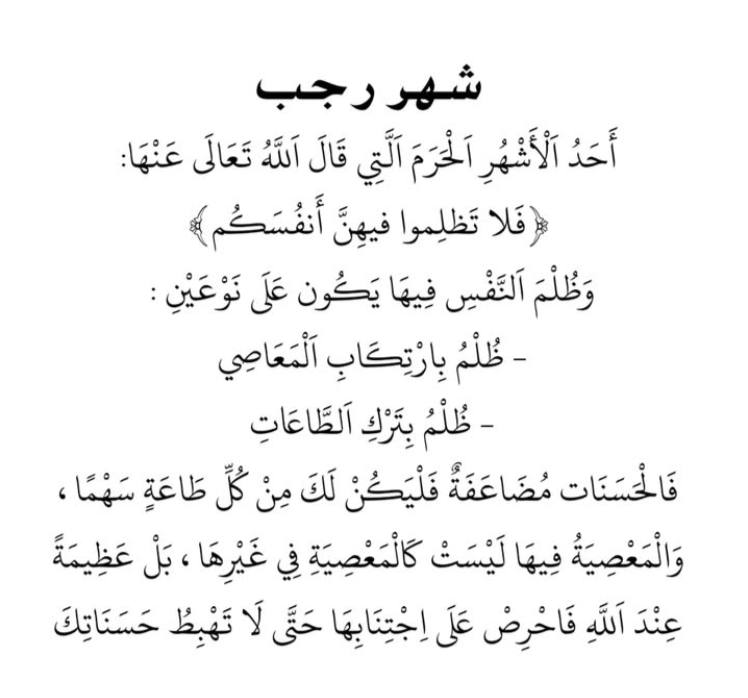 شهر رجب
أَحَدُ اَلْأَشْهُرِ اَلْحَرَمَ اَلَّتِي قَالَ اَللَّهُ تَعَالَى عَنْهَا:
﴿فَلا تَظلِموا فيهِنَّ أَنفُسَكُم﴾
وَظُلْمَ اَلنَّفْسِ فِيهَا يَكُون عَلَى نَوْعَيْنِ :
- ظُلْمُ بِارْتِكَابِ اَلْمَعَاصِي
- ظُلْمُ بِتَرْكِ اَلطَّاعَاتِ
فَالْحَسَنَات مُضَاعَفَةٌ فَلْيَكُنْ لَكَ مِنْ كُلِّ طَاعَةٍ سَهْمًا ،
وَالْمَعْصِيَةُ فِيهَا لَيْسَتْ كَالْمَعْصِيَةِ فِي غَيْرِهَا ، بَلْ عَظِيمَةً
عِنْدَ اَللَّهِ فَاحْرِصْ عَلَى اِجْتِنَابِهَا حَتَّى لَا تَهْبِطُ حَسَنَاتِكَ